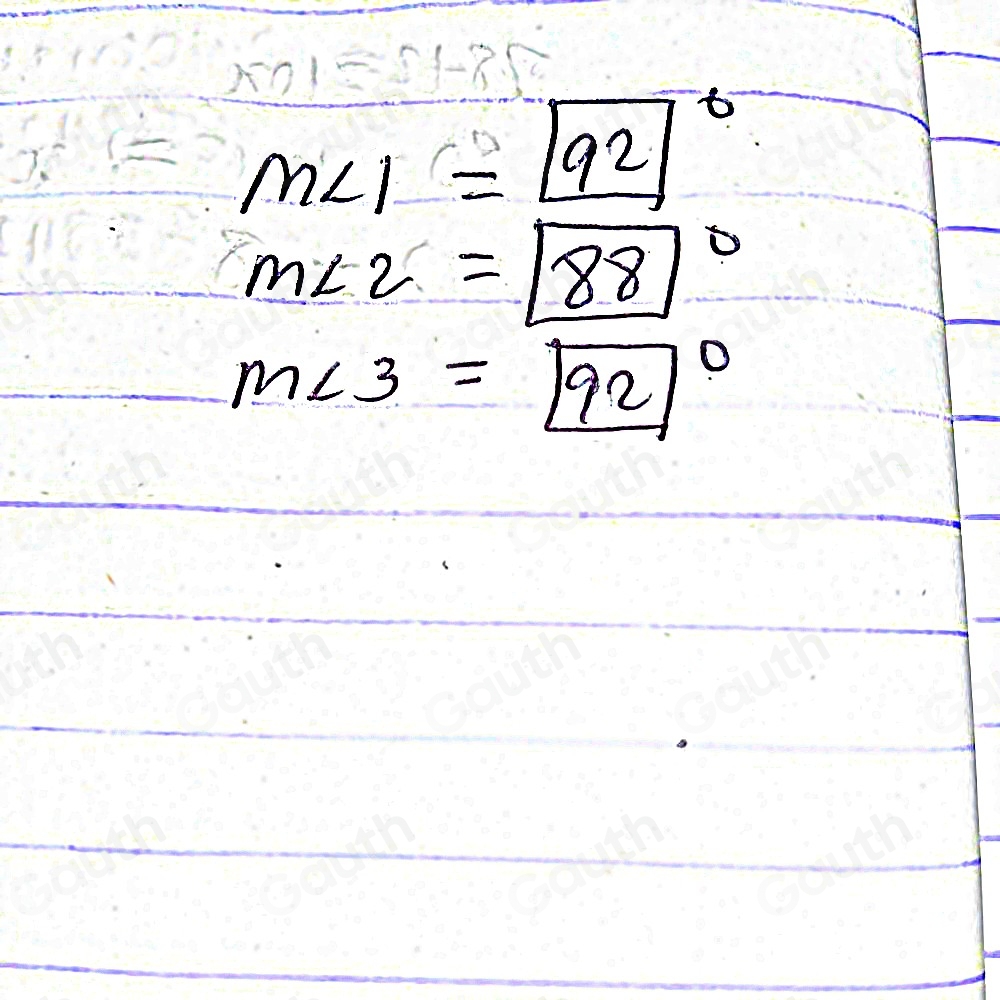 m∠1 = 92°
m∠2 = 88°
m∠3 = 92°